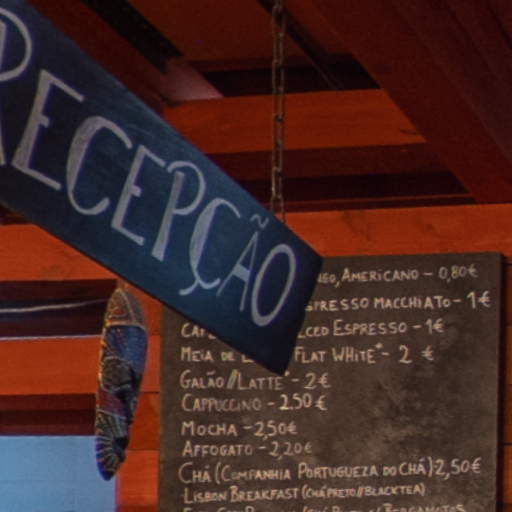 RECEPÇÃO
AMERICANO - 0,80€
MACCHIATO - 1€
ESPRESSO - 1€
MEIA DE FLAT WHITE" - 2 €
GALÃO // LATTE" - 2€
CAPPUCCINO - 2.50€
MOCHA - 2,50€
AFFOGATO - 2,20€
CHÁ (COMPANHIA PORTUGUEZA DO CHÁ) 2,50€
LISBON BREAKFAST (CHÁ PRETO // BLACK TEA)